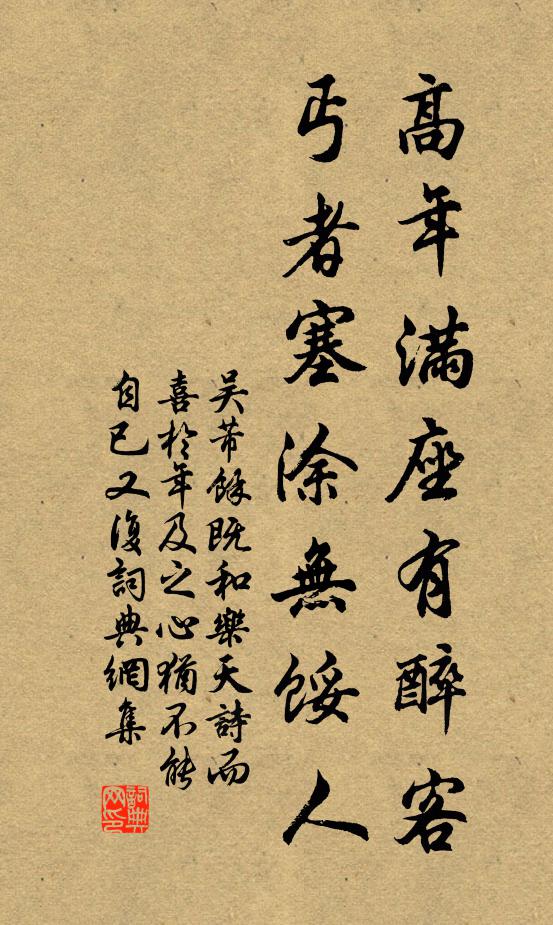 高年滿座有醉客
丐者塞涂無餒人
吴芾餘既和樂天詩而
喜於年及之心猶不能
自已又復詞典網集
詞典网印